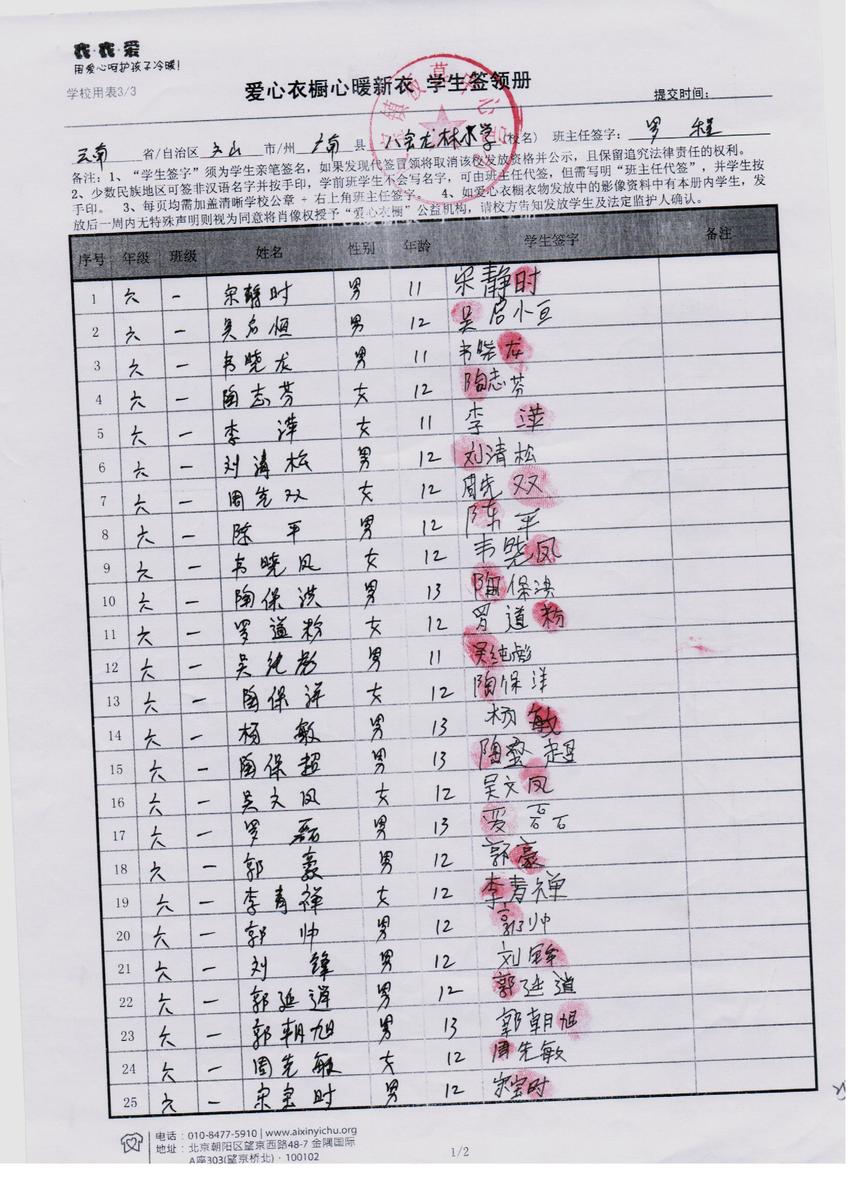 衣·衣·爱
用爱心呵护孩子冷暖!
学校用表3/3
爱心衣橱心暖新衣 学生签领册
提交时间:
云南 省/自治区 文山 市/州 广南 县 八宝龙林小学(校名) 班主任签字: 罗
备注:1、“学生签字”须为学生亲笔签名,如果发现代签冒领将取消该校发放资格并公示,且保留追究法律责任的权利。
2、少数民族地区可签非汉语名字并按手印,学前班学生不会写名字,可由班主任代签,但需写明“班主任代签”,并学生按
手印。 3、每页均需加盖清晰学校公章 + 右上角班主任签字。 4、如爱心衣橱衣物发放中的影像资料中有本册内学生,发
放后一周内无特殊声明则视为同意将肖像权授予“爱心衣橱”公益机构,请校方告知发放学生及法定监护人确认。
序号 年级 班级 姓名 性别 年龄 学生签字 备注
1 六 一 宋静时 男 11 宋静时
2 六 一 吴启恒 男 12 吴启小亘
3 六 一 韦晓龙 男 11 韦晓龙
4 六 一 陶志芬 女 12 陶志芬
5 六 一 李萍 女 11 李萍
6 六 一 刘清松 男 12 刘清松
7 六 一 周先双 女 12 周先双
8 六 一 陈平 男 12 陈平
9 六 一 韦晓凤 女 12 韦晓凤
10 六 一 陶保洪 男 13 陶保洪
11 六 一 罗道粉 女 12 罗道粉
12 六 一 吴纯彪 男 11 吴纯彪
13 六 一 陶保洋 女 12 陶保洋
14 六 一 杨敏 男 13 杨敏
15 六 一 陶保超 男 13 陶 超
16 六 一 吴文凤 女 12 吴文凤
17 六 一 罗磊 男 13
18 六 一 郭豪 男 12 郭豪
19 六 一 李青禅 女 12 李青禅
20 六 一 郭帅 男 12 郭帅
21 六 一 刘锋 男 12 刘锋
22 六 一 郭延道 男 12 郭延道
23 六 一 郭朝旭 男 13 郭朝旭
24 六 一 周先敏 女 12 周先敏
25 六 一 宋宝时 男 12 宋宝时
电话:010-8477-5910 | www.aixinyichu.org
地址:北京朝阳区望京西路48-7 金隅国际
A座303(望京桥北)·100102
1/2